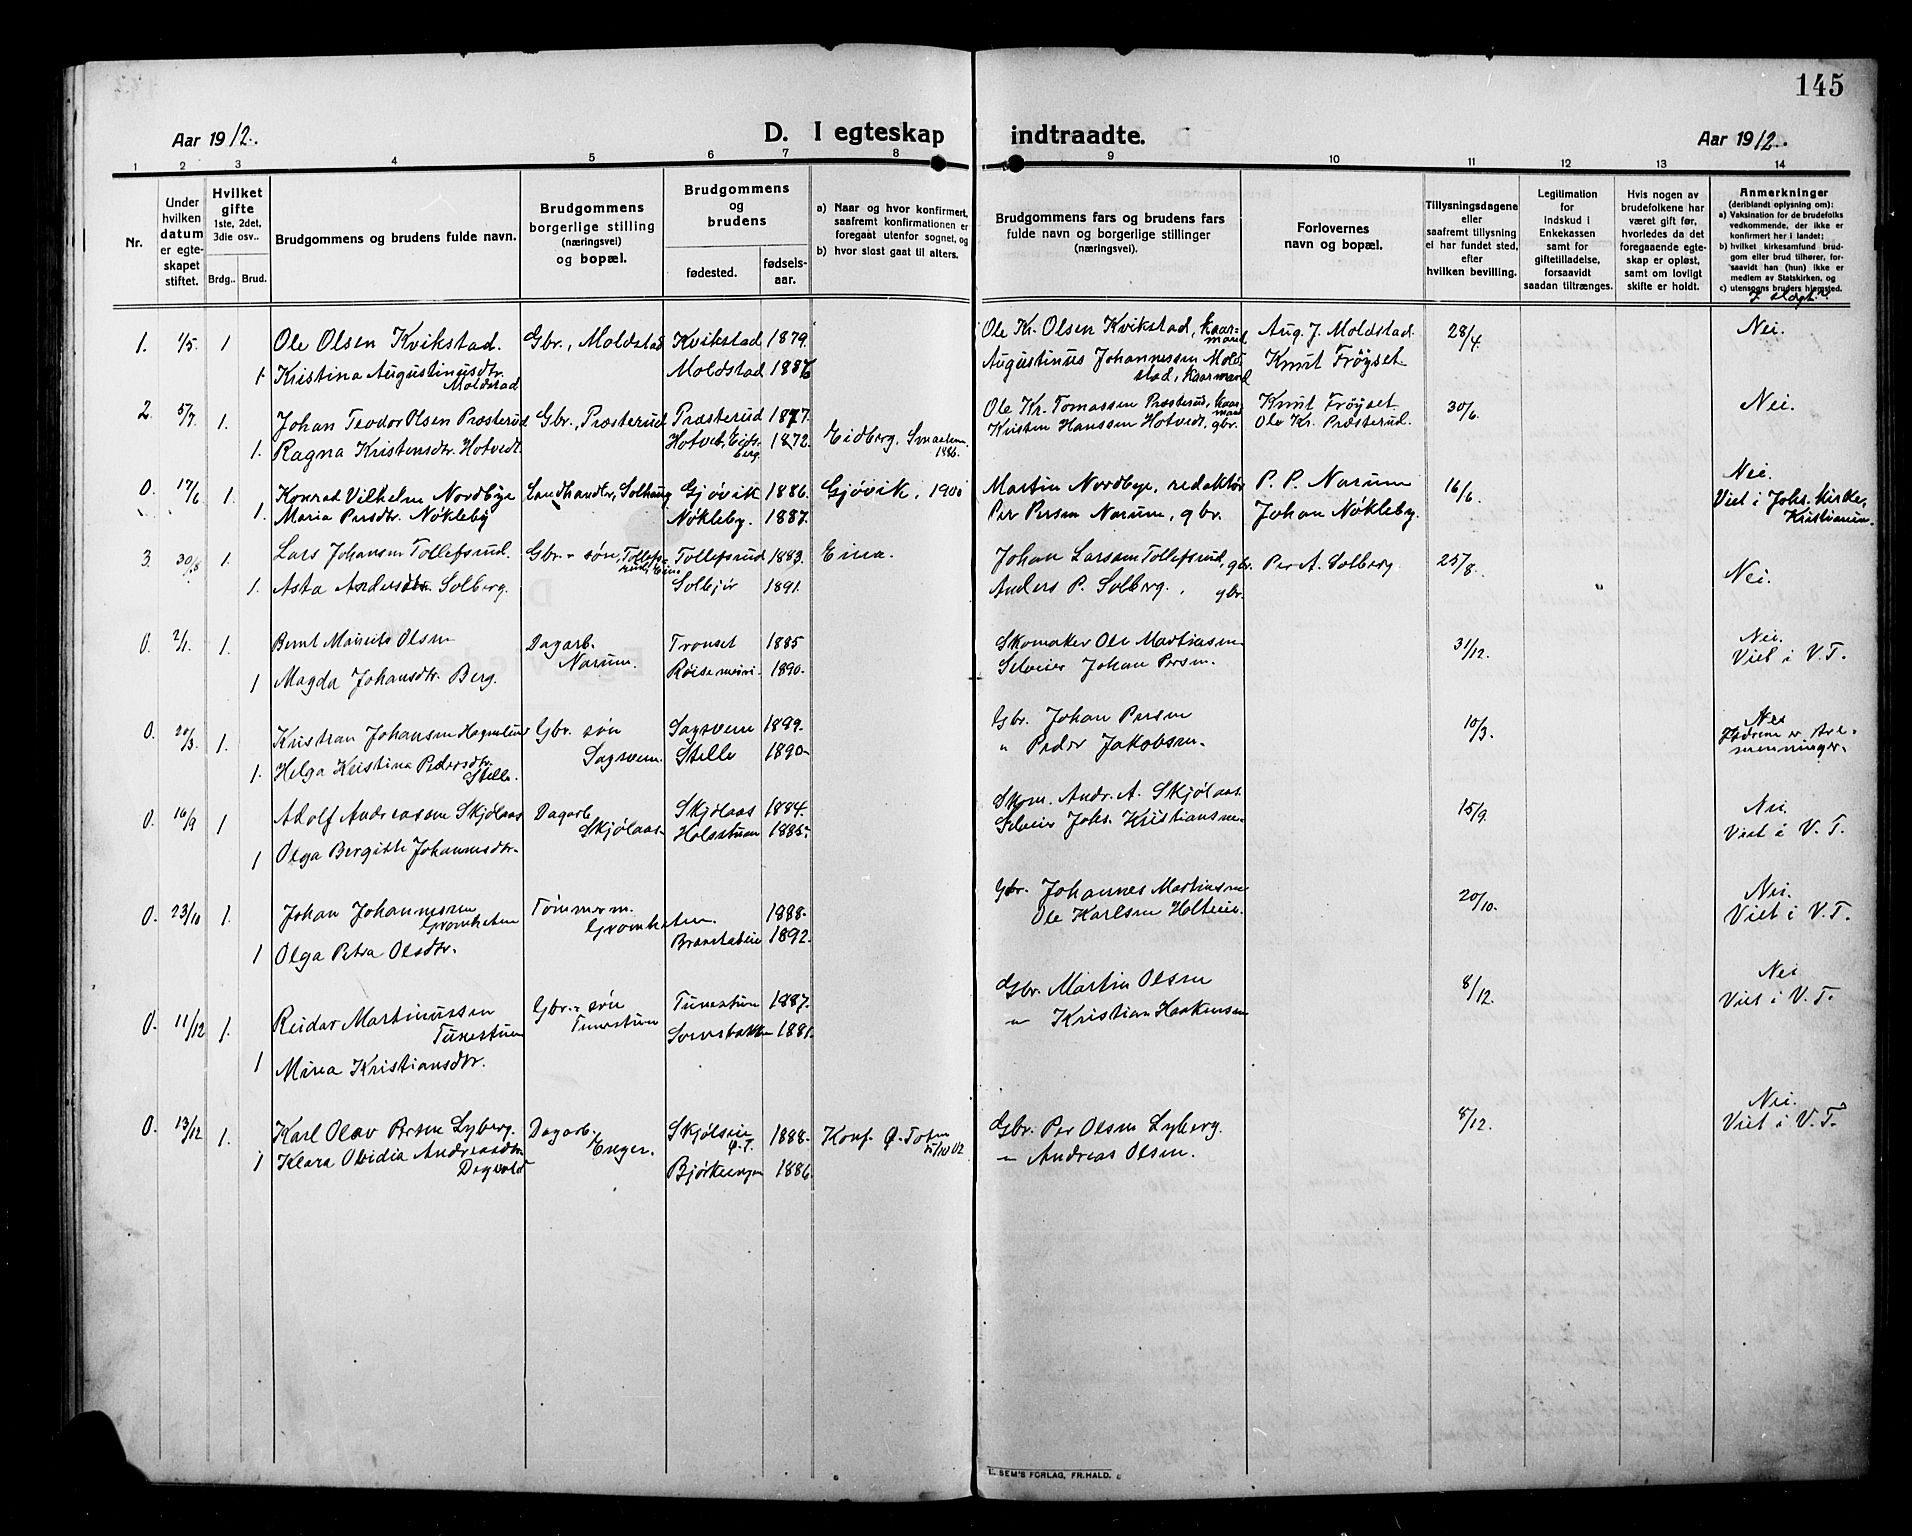 145
Aar 1912.
D. I egteskap indtraadte.
Aar 1912.
1 2 3 4 5 6 7 8 9 10 11 12 13 14
Nr.
Under hvilken datum er egteskapet stiftet.
Hvilket gifte 1ste, 2det, 3die osv..
Brdg.. Brud.
Brudgommens og brudens fulde navn.
Brudgommens borgerlige stilling (næringsvei) og bopæl.
Brudgommens og brudens
fødested.
fødselsaar.
a) Naar og hvor konfirmert, saafremt konfirmationen er foregaat utenfor sognet, og
b) hvor sidst gaat til alters.
Brudgommens fars og brudens fars fulde navn og borgerlige stillinger (næringsvei).
Forlovernes navn og bopæl.
Tillysningsdagene eller saafremt tillysning ei har fundet sted, efter hvilken bevilling.
Legitimation for Indskud i Enkekassen samt for giftetilladelse, forsaavidt saadan tiltrænges.
Hvis nogen av brudefolkene har været gift før, hvorledes da det foregaaende egteskap er opløst, samt om lovligt skifte er holdt.
Anmerkninger (deriblandt oplysning om):
a) Vaksination for de brudefolks vedkommende, der ikke er konfirmert her i landet;
b) hvilket kirkesamfund brudgom eller brud tilhører, forsaavidt han (hun) ikke er medlem av Statskirken, og
c) utensogns bruders hjemsted.
1. 1/5. 1 Ole Olsen Kvikstad. Gbr., Moldstad Kvikstad 1879. Ole Kr. Olsen Kvikstad, kaarmand Aug. J. Moldstad. 28/4. Nei.
1. Kristina Augustinusdtr. Moldstad Moldstad 1886 Augustinus Johannessen Moldstad, kaarmand Knut Frøyset
2. 5/7. 1. Johan Teodor Olsen Præsterud Gbr., Præsterud Præsterud 1877. Ole Kr. Tomassen Præsterud, kaarmand Knut Frøyset 30/6. Nei.
1. Ragna Kristensdtr. Hotvedt Hotvet, Eidsberg. 1872. Eidberg, Smaalenene 1886. Kristen Hanssen Hotvedt, gbr. Ole Kr. Præsterud.
0. 17/6 1. Konrad Vilhelm Nordbye Landhandler, Solhaug Gjøvik 1886. Gjøvik, 1900 Martin Nordbye, redaktør P. P. Narum 16/6. Nei.
1. Maria Persdtr. Nøkleby Nøkleby. 1887. Per Persen Narum, gbr. Johan Nøkleby. Viet i Johs. kirke, Kristiania.
3. 30/8 1. Lars Johansen Tollefsrud. Gbr.-søn, Tollefsrud, Eina Tollefsrud 1883. Eina. Johan Larssen Tollefsrud, gbr. Per A. Solberg. 25/8. Nei.
1. Asta Andersdtr. Solberg. Solbejør 1891. Anders P. Solberg, gbr.
0. 2/1. 1. Bernt Maurits Olsen Dagarb. Narum. Tronset 1885 Skomaker Ole Martinsen 31/12. Nei.
1 Magda Johansdtr. Berg. 1890. Selveier Johan Persen. Viet i V.T.
0. 20/3. 1. Kristian Johansen Gbr. søn Sagsveen. Sagsveen 1899. Gbr. Johan Persen 10/3. Nei
1. Helga Kristina Pedersdtr. Stelle. Stelle 1890. " Peder Jakobsen.
0. 16/9 1 Adolf Andreassen Skjølaas Dagarb. Skjølaas. Skjølaas 1884. Skom. Andr. A. Skjølaas. 15/9. Nei
1 Olga Bergitte Johannesdtr. Holostuen 1885. Selveier Johs. Kristiansen. Viet i V.T.
0. 23/10 1. Johan Johannesen Gromheten Tømmerm. Gromheten. 1888. Gbr. Johannes Martinsen 20/10. Nei.
1 Olga Petra Olsdtr. 1892. Ole Karlsen Holteie. Viet i V.T.
0. 11/12 1. Reidar Martinussen Tunestuen Gbr.-søn Tunestuen Tunestuen 1887. Gbr. Martin Olsen 8/12. Nei
1 Mina Kristiansdtr. 1881. " Kristian Haakensen Viet i V.T.
0. 13/12 1. Karl Olav Persen Lyberg. Dagarb. Enger. Skjølseie Ø.T. 1888. Konf. Ø. Toten 5/10 02 Gbr. Per Olsen Lyberg. 8/12. Nei.
1 Klara Ovidia Andreasdtr. Dagvold Bjørkeengen 1886 " Andreas Olsen. Viet i V.T.
E. SEM'S FORLAG, FR.HALD.